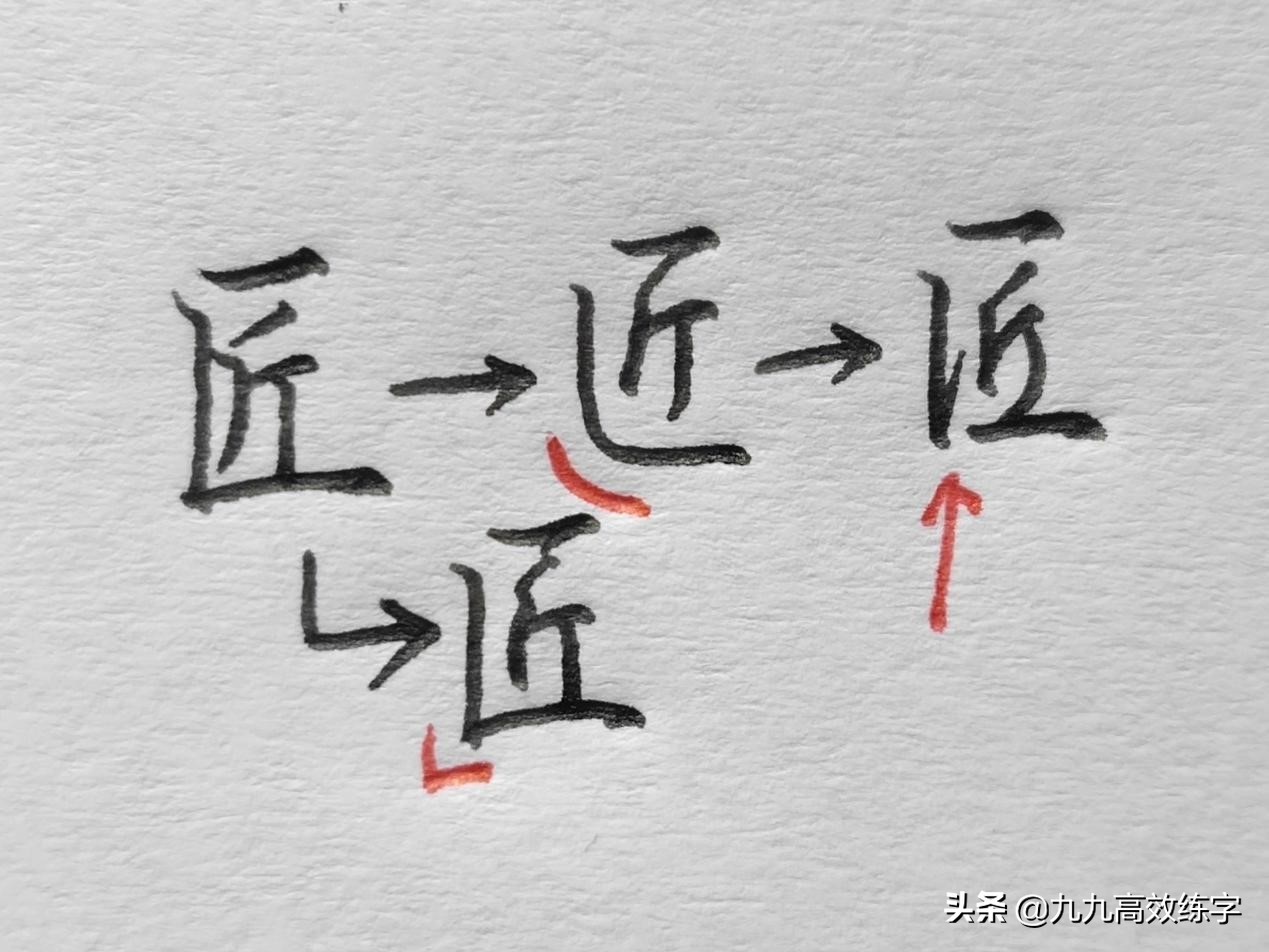 匠→匠→匠
匠
头条 @九九高效练字